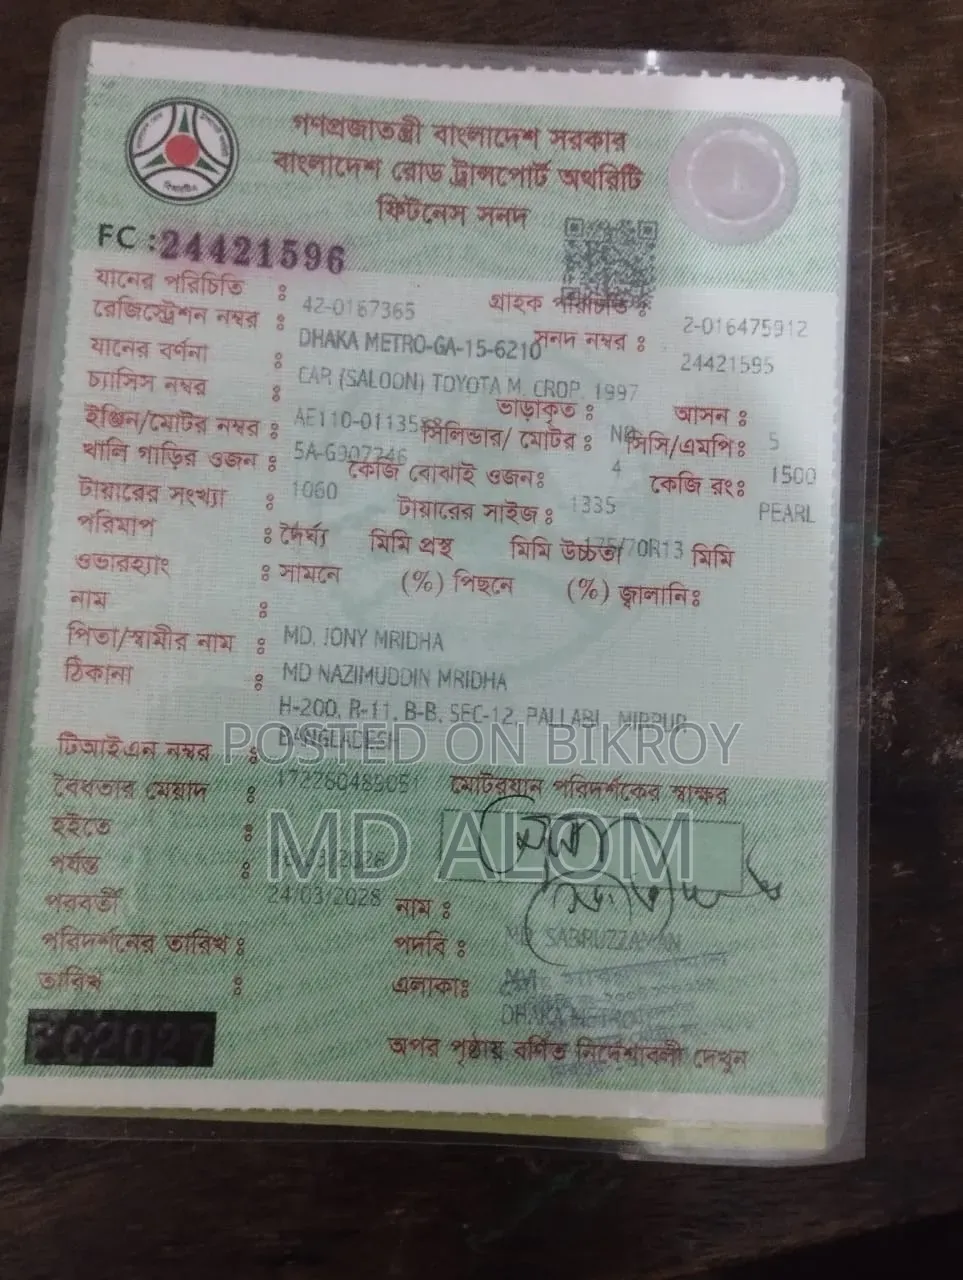 গণপ্রজাতন্ত্রী বাংলাদেশ সরকার
বাংলাদেশ রোড ট্রান্সপোর্ট অথরিটি
ফিটনেস সনদ
FC : 24421596
যানের পরিচিতি : 42-0167365 গ্রাহক পরিচিতি : 2-016475912
রেজিস্ট্রেশন নম্বর : DHAKA METRO-GA-15-6210 সনদ নম্বর : 24421595
যানের বর্ণনা : CAR (SALOON) TOYOTA M. CROP. 1997
চ্যাসিস নম্বর : AE110-01135 ভাড়াকৃত : আসন : 5
ইঞ্জিন/মোটর নম্বর : 5A-G907246 সিলিন্ডার/ মোটর : 4 সিসি/এমপি: 1500
খালি গাড়ির ওজন : 1060 কেজি বোঝাই ওজন: 1335 কেজি রং: PEARL
টায়ারের সংখ্যা : টায়ারের সাইজ : /70R13
পরিমাপ : দৈর্ঘ্য মিমি প্রস্থ মিমি উচ্চতা মিমি
ওভারহ্যাং : সামনে (%) পিছনে (%) জ্বালানি:
নাম : MD. JONY MRIDHA
পিতা/স্বামীর নাম : MD NAZIMUDDIN MRIDHA
ঠিকানা : H-200, R-11, B-B, SEC-12, PALLABI, MIRPUR,
BANGLADESH
POSTED ON BIKROY
টিআইএন নম্বর :
বৈধতার মেয়াদ : মোটরযান পরিদর্শকের স্বাক্ষর
হইতে :
MD ALOM
পর্যন্ত : 24/03/2028
পরবর্তী নাম : MD SABRUZZAMAN
পরিদর্শনের তারিখ : পদবি :
তারিখ : এলাকা:
অপর পৃষ্ঠায় বর্ণিত নির্দেশাবলী দেখুন